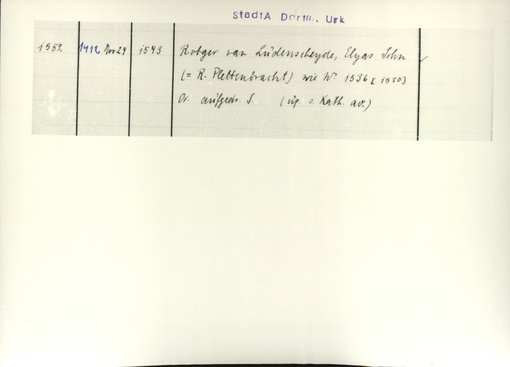 StadtA Dortm. Urk
1552 1412 Nov 24 1543 Rotger van Lüdenscheyde, Elyas Sohn
(= R. Plettenbracht) wie Nº 1536 [1510]
Or. aufgedr. S. (ip s. Kath. av.)